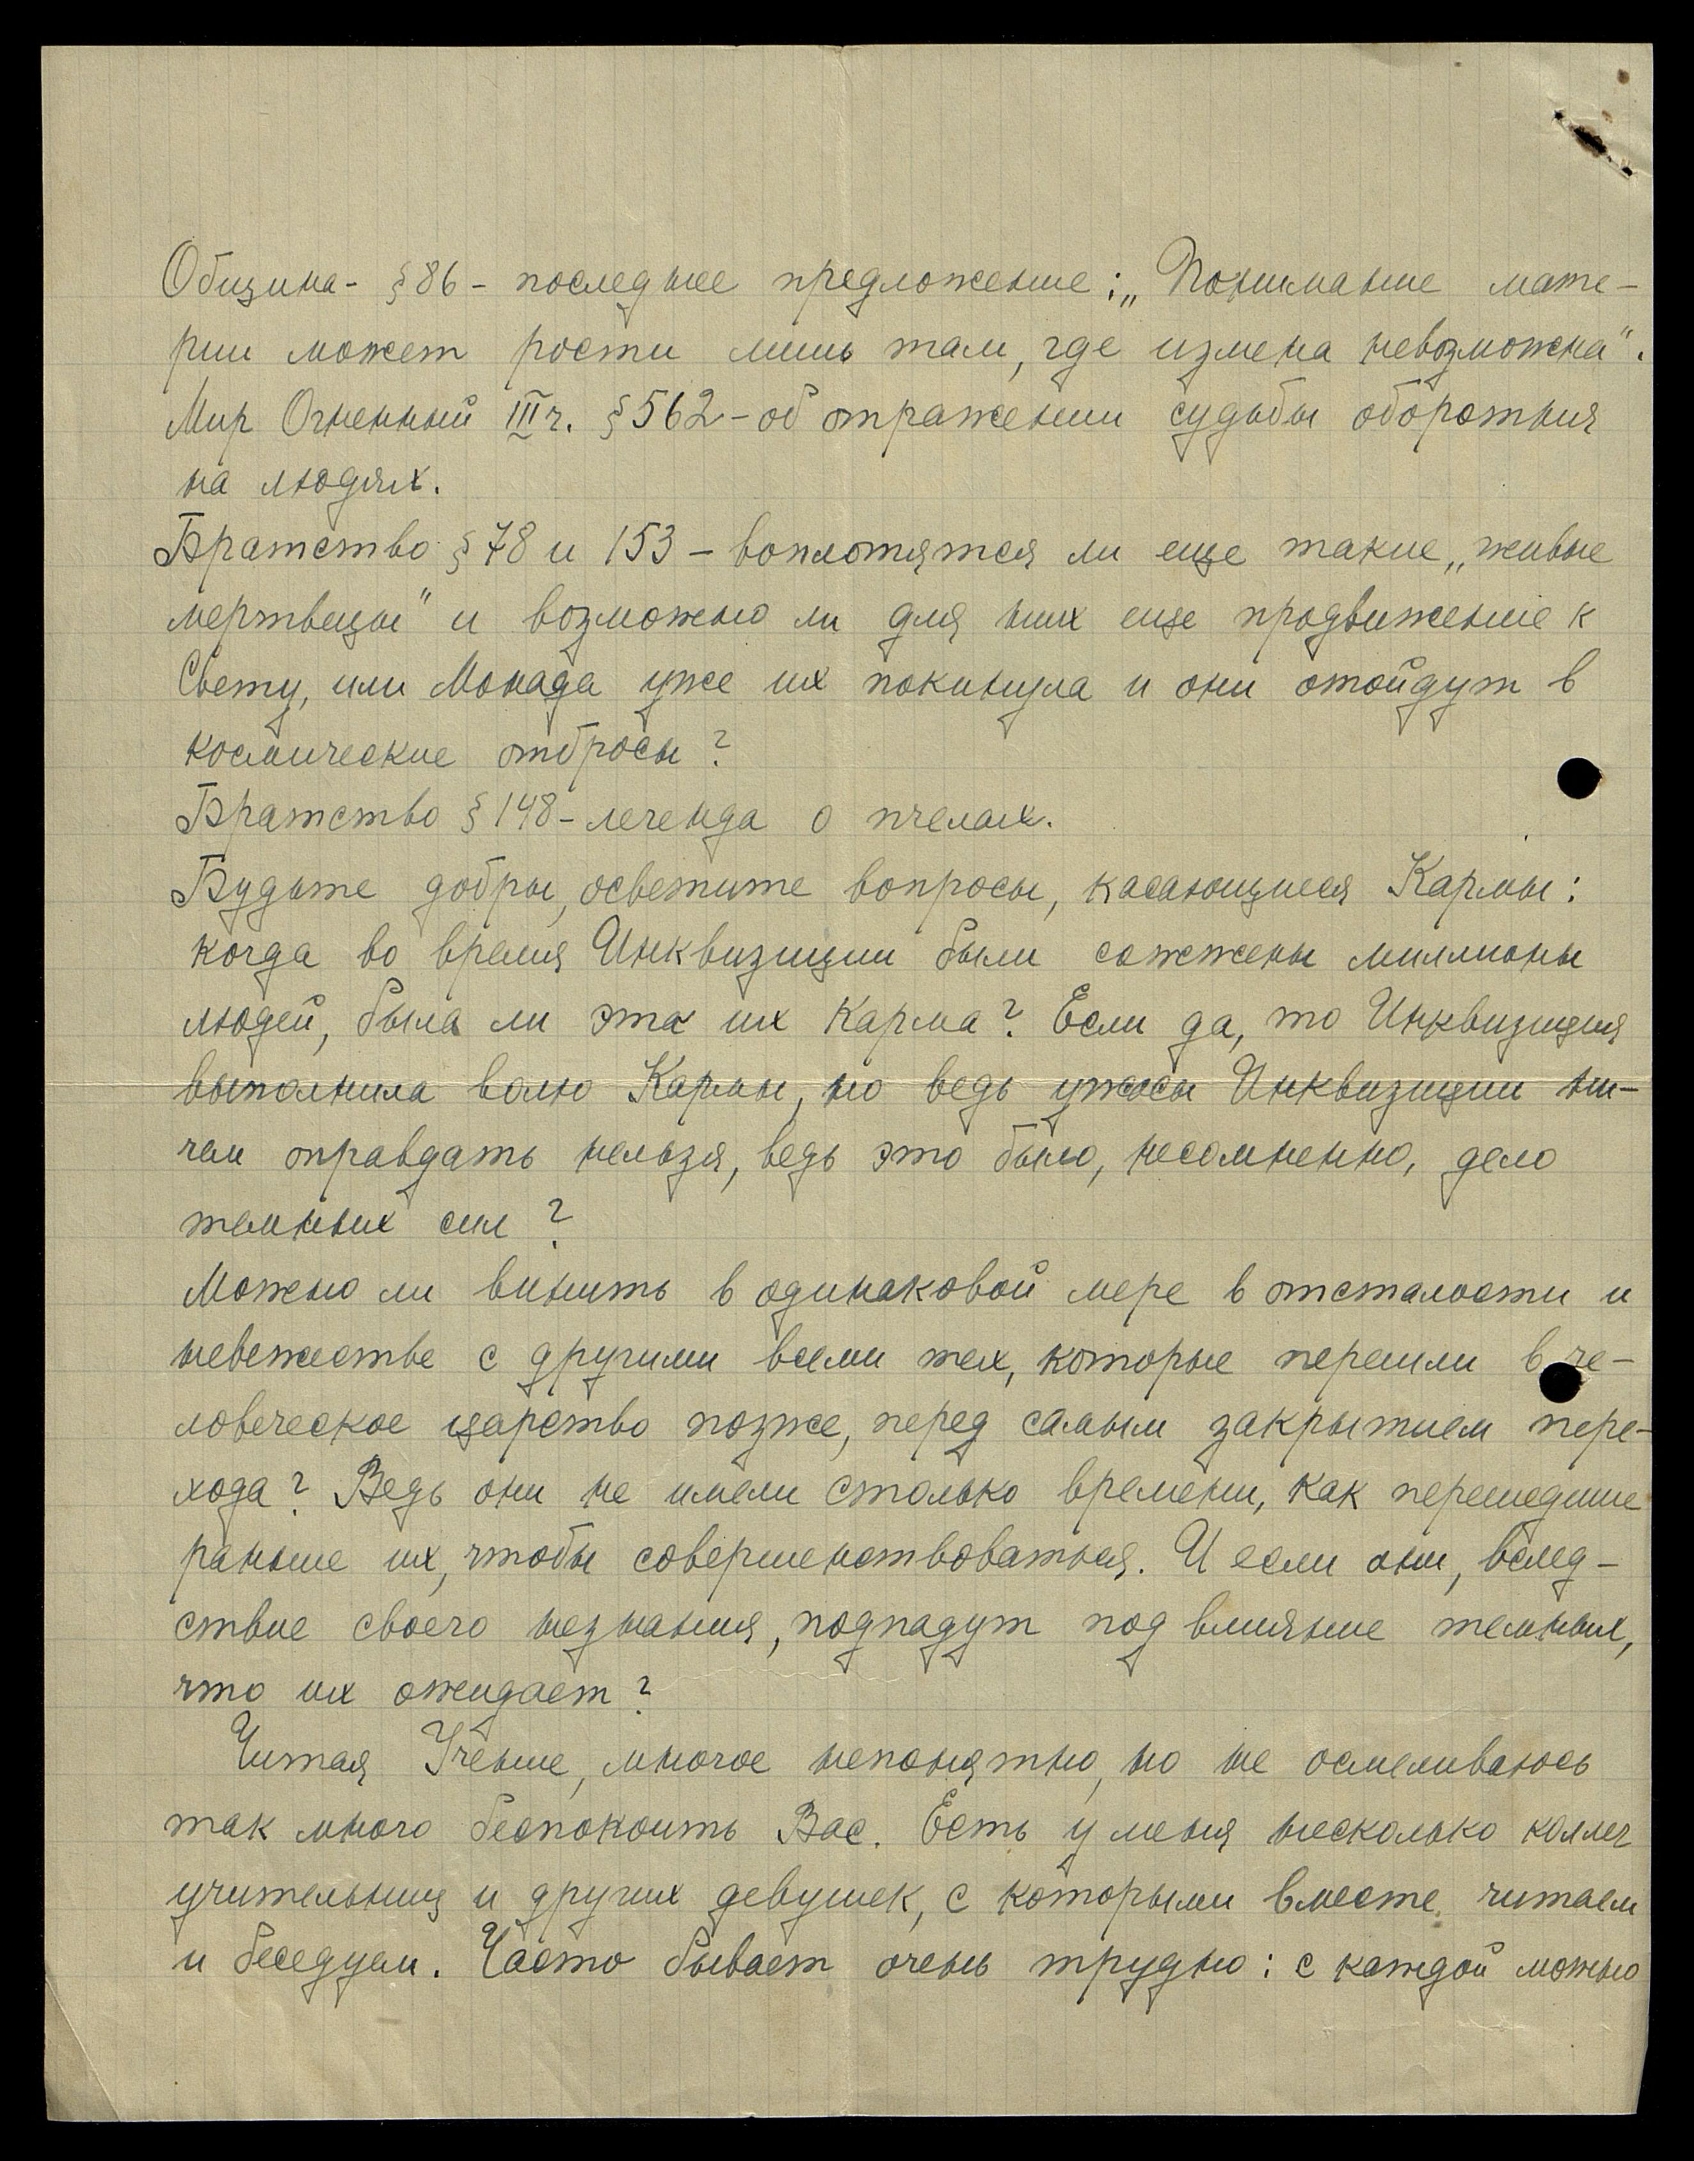 Община - § 86 - последнее предложение: „Понимание мате-
рии может рости лишь там, где измена невозможна".
Мир Огненный III ч. § 562 - об отражении судьбы оборотния
на людях.
Братство § 78 и 153 - воплотятся ли еще такие „живые
мертвецы" и возможно ли для них еще продвижение к
Свету, или Монада уже их покинула и они отойдут в
космические отбросы?
Братство § 148 - легенда о пчелах.
Будьте добры, осветите вопросы, касающиеся Кармы:
когда во время Инквизиции были сожжены миллионы
людей, была ли эта их Карма? Если да, то Инквизиция
выполнила волю Кармы, но ведь ужасы Инквизиции ни-
чем оправдать нельзя, ведь это было, несомненно, дело
темных сил?
Можно ли винить в одинаковой мере в отсталости и
невежестве с другими всеми тех, которые перешли в че-
ловеческое царство позже, перед самым закрытием пере-
хода? Ведь они не имели столько времени, как перешедшие
раньше их, чтобы совершенствоваться. И если они, вслед-
ствие своего незнания, подпадут под влияние темных,
что их ожидает?
Читая Учение, многое непонятно, но не осмеливаюсь
так много беспокоить Вас. Есть у меня несколько коллег
учительниц и других девушек, с которыми вместе читаем
и беседуем. Часто бывает очень трудно: с каждой можно